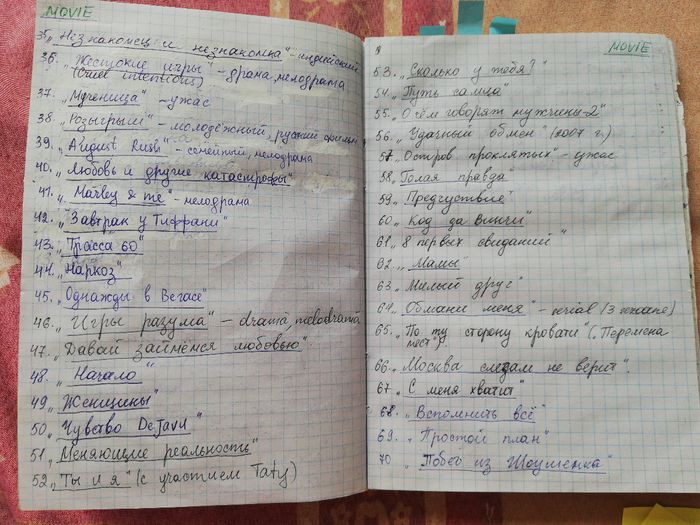 MOVIE
35. „Незнакомец и незнакомка" - индейский
36. „Жестокие игры" - драма, мелодрама
(Cruel intentions)
37. „Мученица" - ужас
38. „Розыгрыш" - молодёжный, русский фильм
39. „August Rush" - семейный, мелодрама
40. „Любовь и другие катастрофы"
41. „Marley & me" - мелодрама
42. „Завтрак у Тиффани"
43. „Трасса 60"
44. „Наркоз"
45. „Однажды в Вегасе"
46. „Игры разума" - dramă, melodramă
47. „Давай займёмся любовью"
48. „Начало"
49. „Женщины"
50. „Чувство DeJavu"
51. „Меняющие реальность"
52. „Ты и я" (с участием Taty)
MOVIE
53. „Сколько у тебя?"
54. „Путь самца"
55. „О чём говорят мужчины-2"
56. „Удачный обмен" (2007 г.)
57. „Остров проклятых" - ужас
58. „Голая правда"
59. „Предчувствие"
60. „Код да Винчи"
61. „8 первых свиданий"
62. „Мамы"
63. „Милый друг"
64. „Обмани меня" - serial (3
65. „По ту сторону кровати" („Перемена
мест")
66. „Москва слезам не верит".
67. „С меня хватит"
68. „Вспомнить всё"
69. „Простой план"
70. „Побег из Шоушенка"